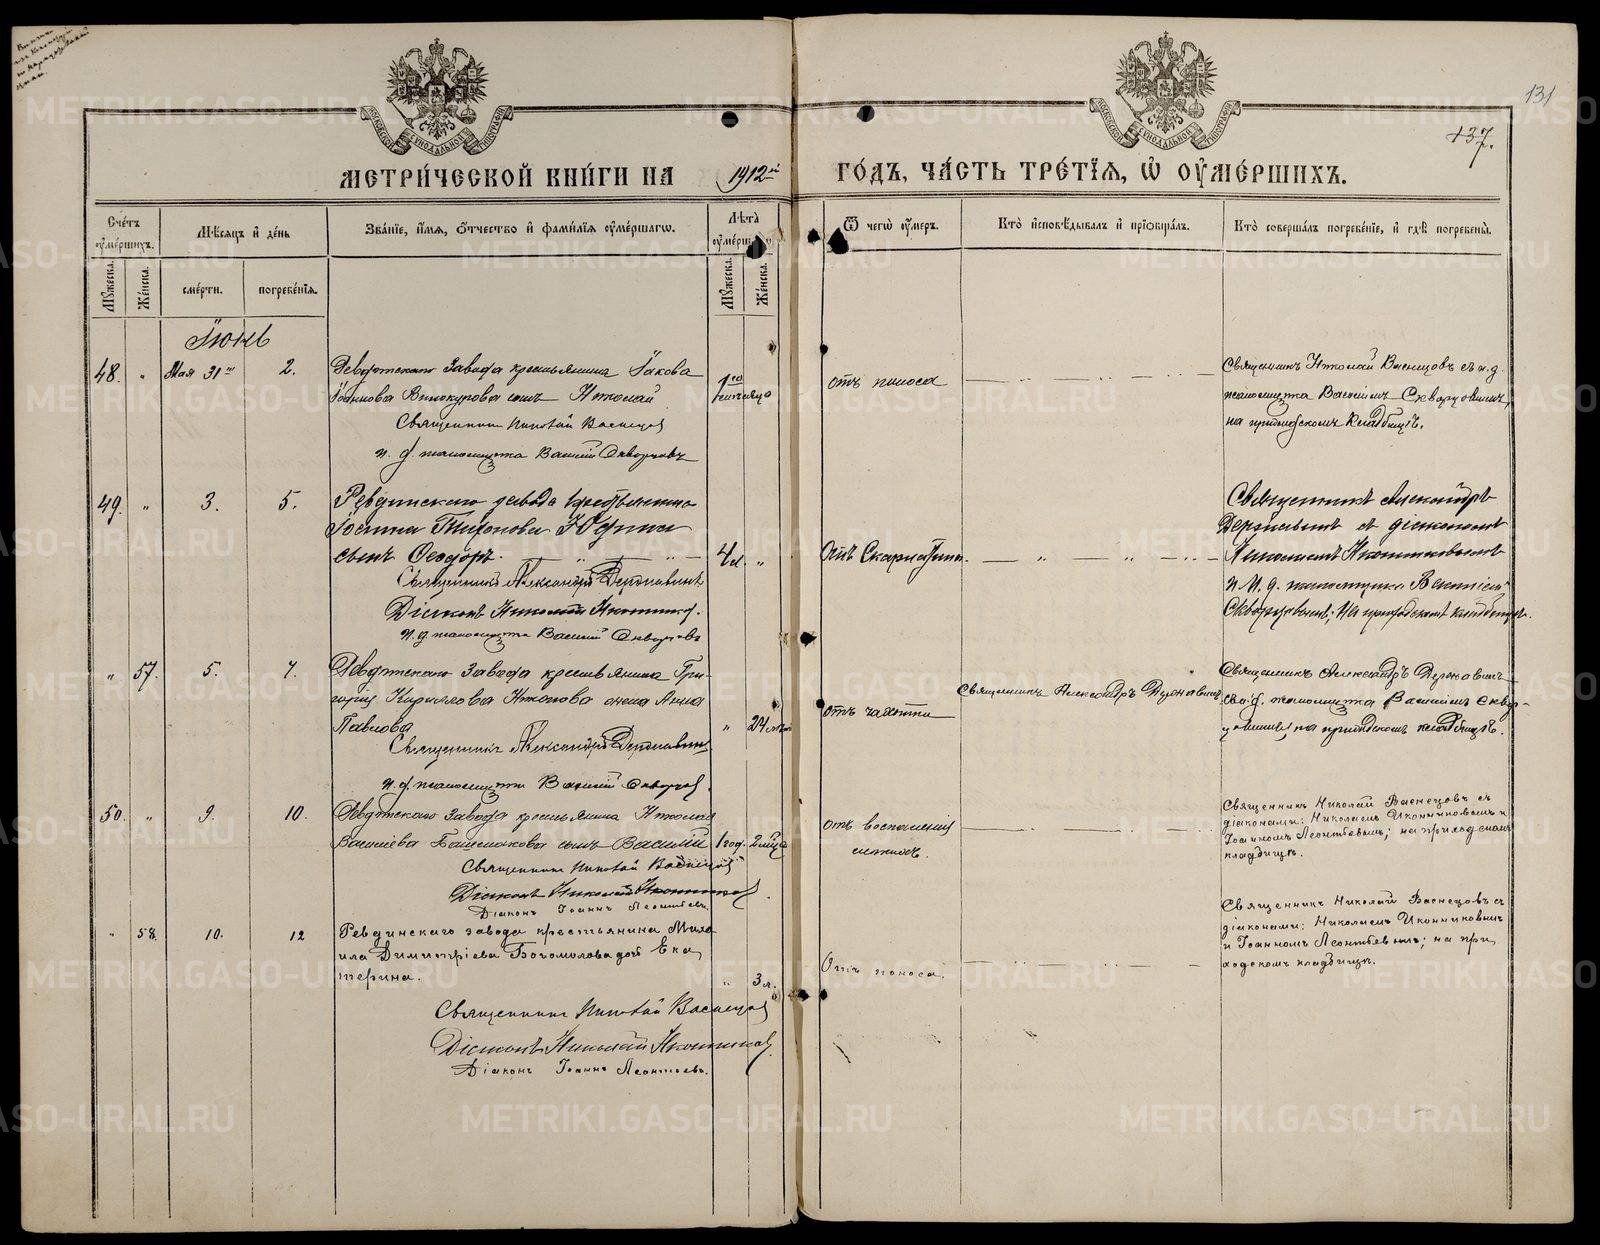 131
137.
МОСКОВСКОЙ СѴНОДАЛЬНОЙ ТИПОГРАФІИ
МОСКОВСКОЙ СѴНОДАЛЬНОЙ ТИПОГРАФІИ
МЕТРИ́ЧЕСКОЙ КНИ́ГИ НА 1912й ГО́ДЪ, ЧА́СТЬ ТРЕ́ТІЯ, Ѡ҆ ОУ҆МЕ́РШИХЪ.
Сче́тъ оу҆ме́ршихъ.
Мѣ́сяцъ и҆ де́нь
Зва́ніе, и҆́мя, ѻ҆́тчество и҆ фами́лія оу҆ме́ршагѡ.
Лѣ́та оу҆ме́ршагѡ.
Ѿ чегѡ̀ оу҆́меръ.
Кто̀ и҆сповѣ́дывалъ и҆ прїѡбща́лъ.
Кто̀ соверша́лъ погребе́ніе, и҆ гдѣ̀ погребены̀.
Мꙋ́жеска.
Же́нска.
сме́рти.
погребе́нія.
Мꙋ́жеска.
Же́нска.
Іюнь
48. " Мая 31го 2. Ревдинскаго Завода крестьянина Іакова
Іоаннова Винокурова сынъ Николай
Священникъ Николай Васнецов
и. д. псаломщика Василій Скворцовъ
отъ поноса
Священникъ Николай Васнецовъ съ и. д.
псаломщика Василіемъ Скворцовымъ,
на приходскомъ кладбищѣ.
49. " 3. 5. Ревдинскаго завода крестьянина
Іоанна Тихонова Юдина
сынъ Ѳеодоръ. 4 л. "
Священникъ Александръ Державинъ
Діаконъ Николай Иконников.
и. д. псаломщика Василій Скворцовъ
Отъ Скарлатины.
Священникъ Александръ
Державинъ съ діакономъ
Николаемъ Иконниковымъ
и И. д. псаломщика Василіемъ
Скворцовымъ; на приходскомъ кладбищѣ.
" 57. 5. 7. Ревдинскаго Завода крестьянина Гри-
горія Кириллова жена Анна
Павлова " 24 лѣт
Священникъ Александръ Державинъ
и. д. псаломщика Василій Скворцов
отъ чахотки
Священникъ Александръ Державинъ
Священникъ Александръ Державинъ
съ и. д. псаломщика Василіемъ Сквор-
цовымъ, на приходскомъ кладбищѣ.
50. " 9. 10. Ревдинскаго Завода крестьянина Николая
Василіева Башмакова сынъ Василій 1 год. 2 мѣс
Священникъ Николай Васнецов
Діаконъ Николай Иконников.
Діаконъ Іоаннъ Леонтьевъ.
отъ воспаленія
легкихъ.
Священникъ Николай Васнецовъ съ
діаконами: Николаемъ Иконниковымъ и
Іоанномъ Леонтьевымъ; на приходскомъ
кладбищѣ.
" 58. 10. 12 Ревдинскаго завода крестьянина Миха
ила Димитріева Богомолова дочь Ека
терина. " 3 л.
Священникъ Николай Васнецов
Діаконъ Николай Иконников.
Діаконъ Іоаннъ Леонтьевъ.
Отъ поноса.
Священникъ Николай Васнецовъ съ
діаконами: Николаемъ Иконниковымъ
и Іоанномъ Леонтьевымъ; на при
ходскомъ кладбищѣ.
METRIKI.GASO-URAL.RU